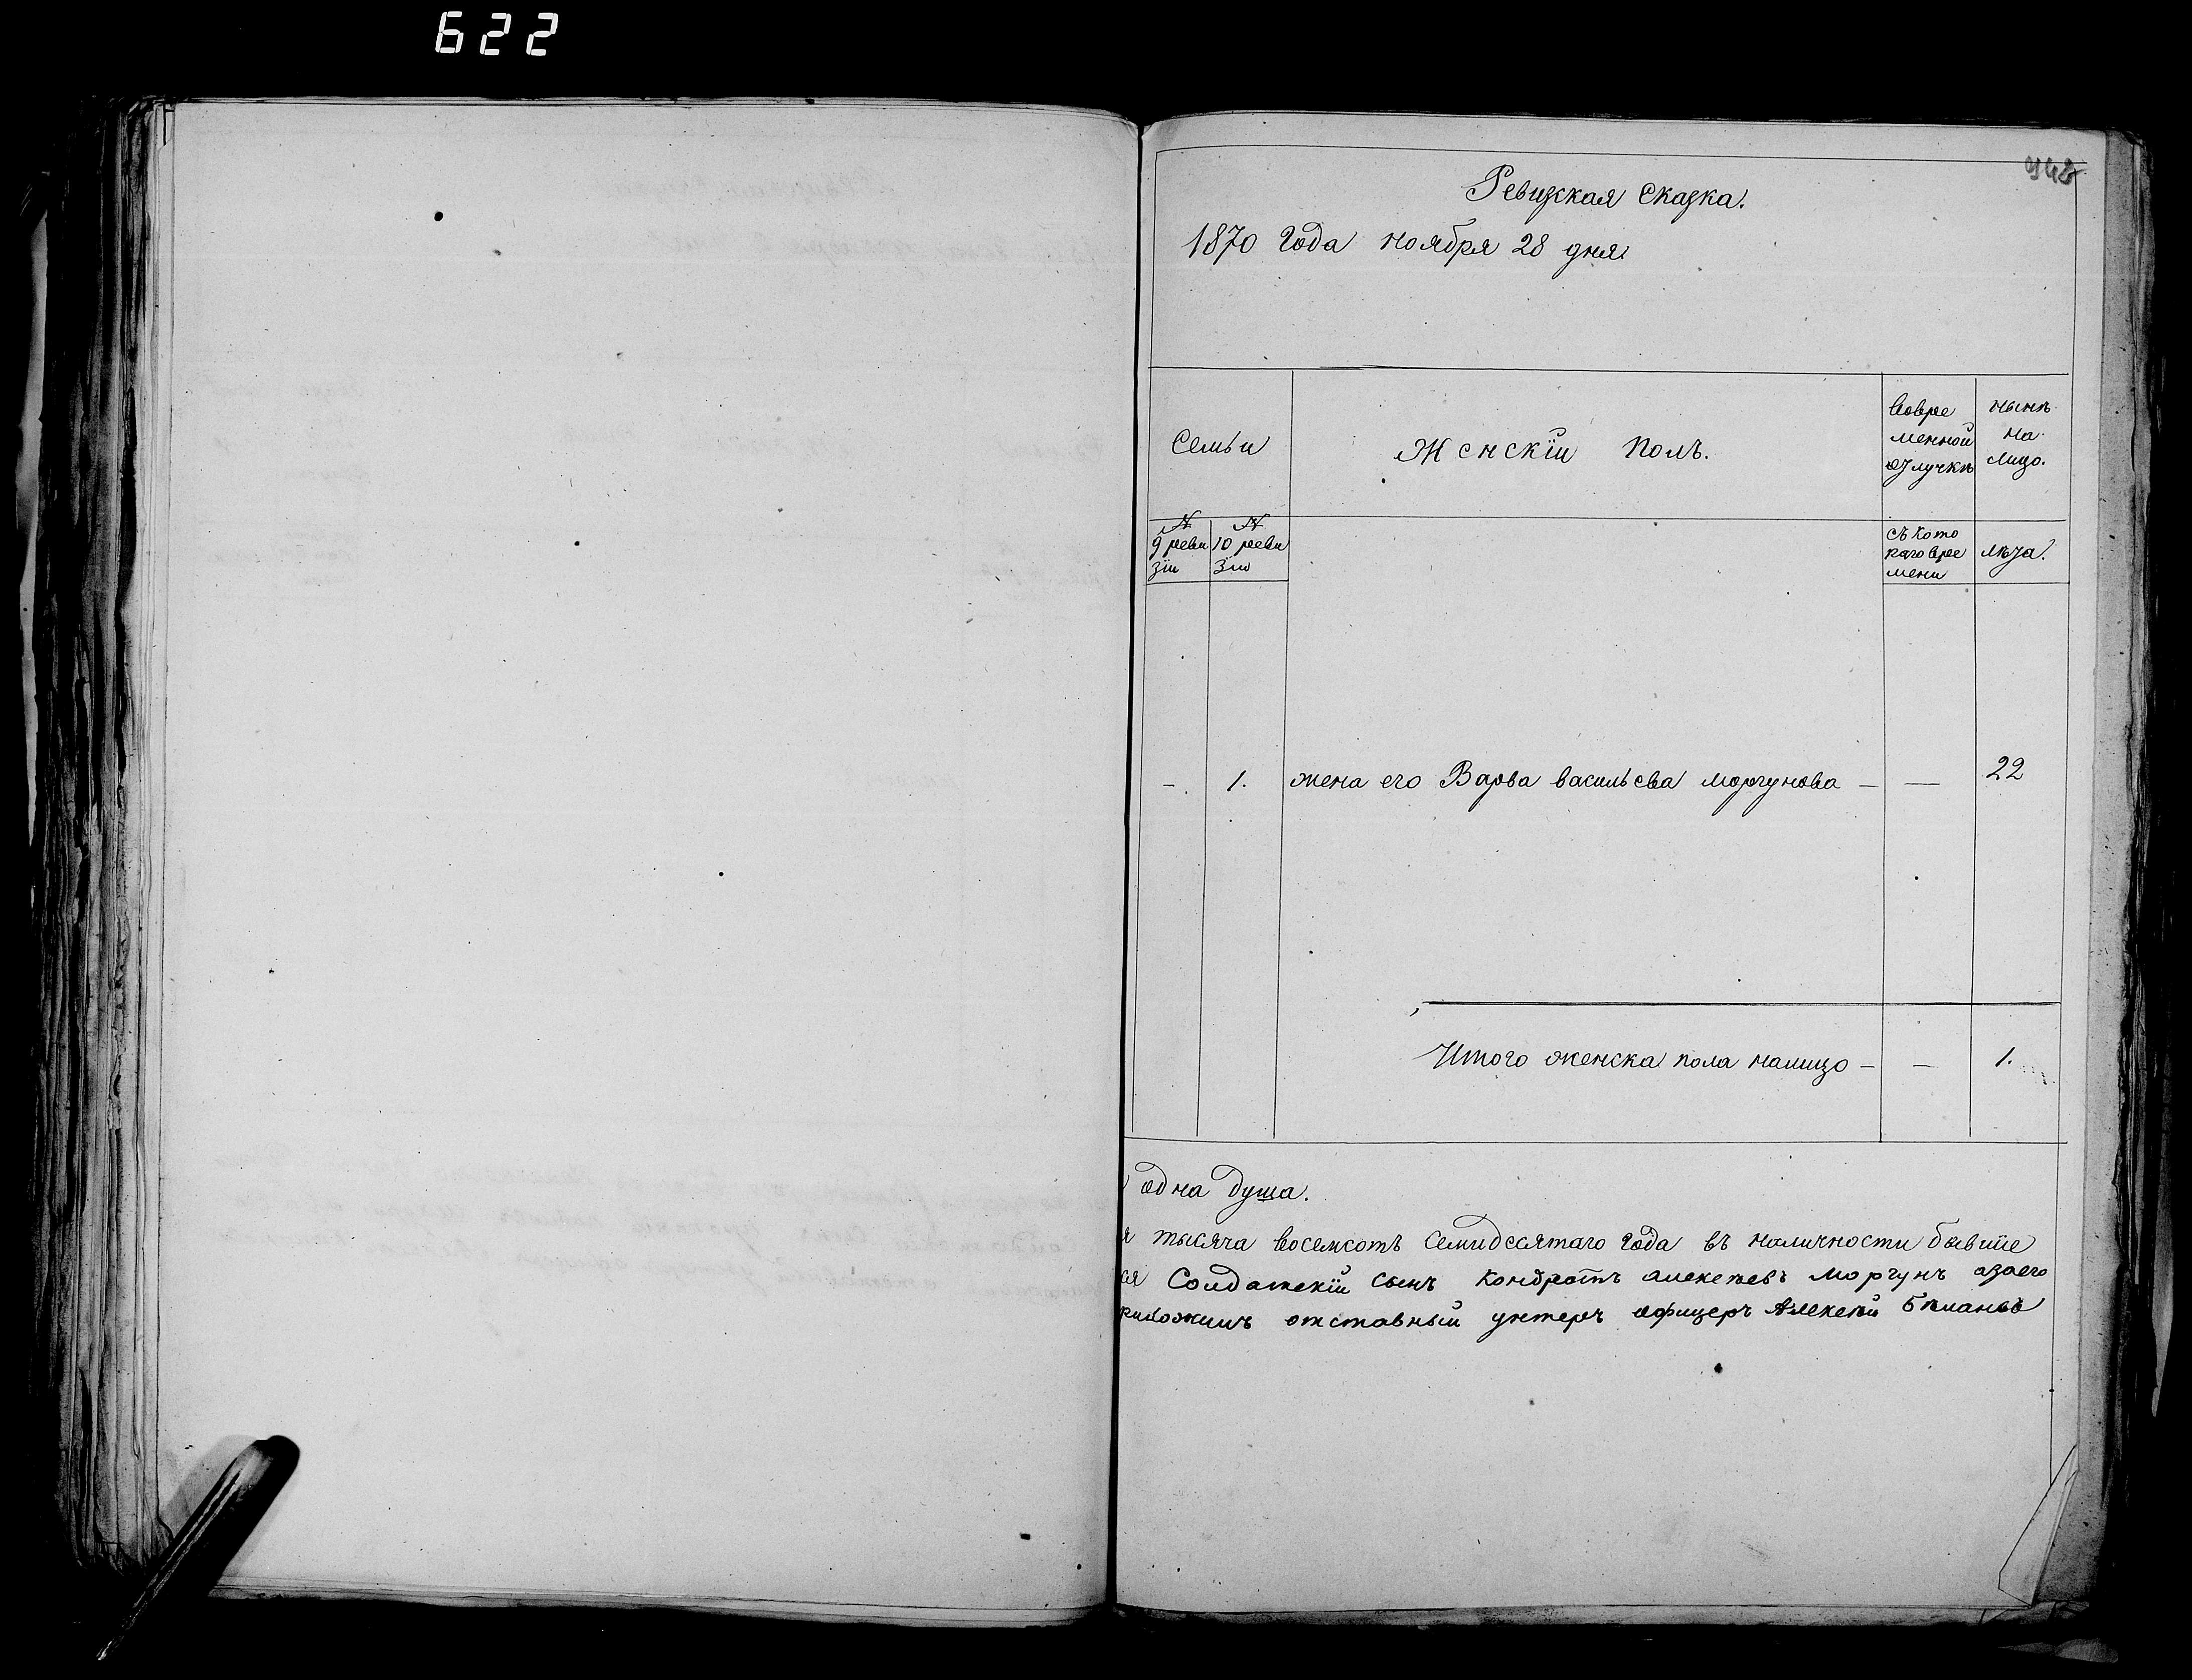 622
948
Ревизская Сказка.
1870 Года ноября 28 дня
Семьи
Женскій Полъ.
Вовре
менной
отлучкѣ
нынѣ
на
Лицо.
№
9 реви
зіи
№
10 реви
Зіи
съ кото
раго вре
мени
лѣта.
-. 1. жена его Варва васильева моргунова — — 22
Итого женска пола налицо — — 1.
одна душа.
я тысяча восемсотъ Семидесятаго Года въ наличности бывшіе
ся Солдатскій Сынъ Кондратъ алексѣевъ Моргунъ азаего
риложилъ отставный унтеръ офицеръ Алексѣй